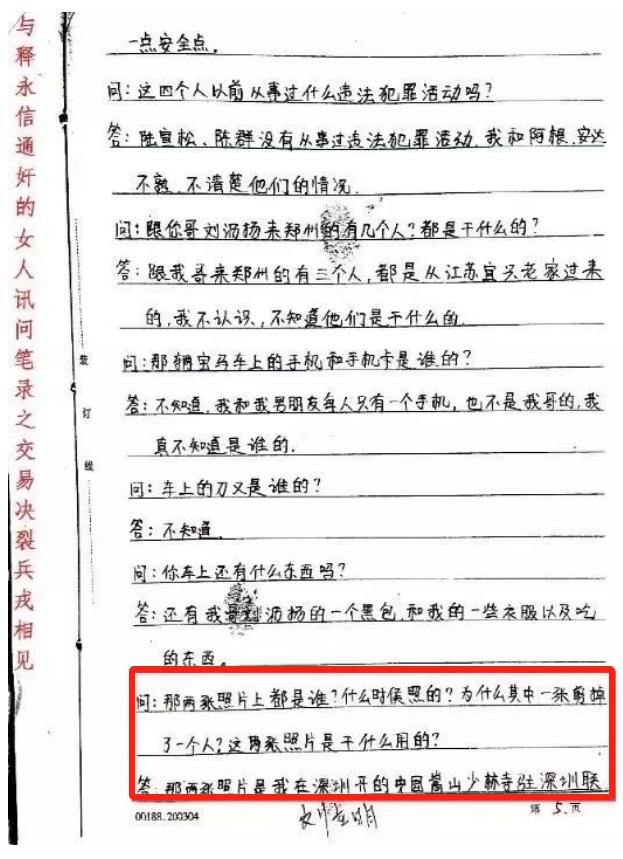 与释永信通奸的女人讯问笔录之交易决裂兵戎相见
一点安全点。
问:这四个人以前从事过什么违法犯罪活动吗?
答:陆宣松、陈群没有从事过违法犯罪活动,我和阿根、安达
不熟,不清楚他们的情况.
问:跟你哥刘沥扬来郑州的有几个人?都是干什么的?
答:跟我哥来郑州的有三个人,都是从江苏宜兴老家过来
的,我不认识,不知道他们是干什么的.
问:那辆宝马车上的手机和手机卡是谁的?
答:不知道,我和我男朋友每人只有一个手机,也不是我哥的,我
真不知道是谁的.
问:车上的刀又是谁的?
答:不知道.
问:你车上还有什么东西吗?
答:还有我哥刘沥扬的一个黑包,和我的一些衣服以及吃
的东西。
问:那两张照片上都是谁?什么时候照的?为什么其中一张剪掉
了一个人?这两张照片是干什么用的?
答:那两张照片是我在深圳开的中国嵩山少林寺驻深圳联
装
订
线
00188.200304
第 5 页